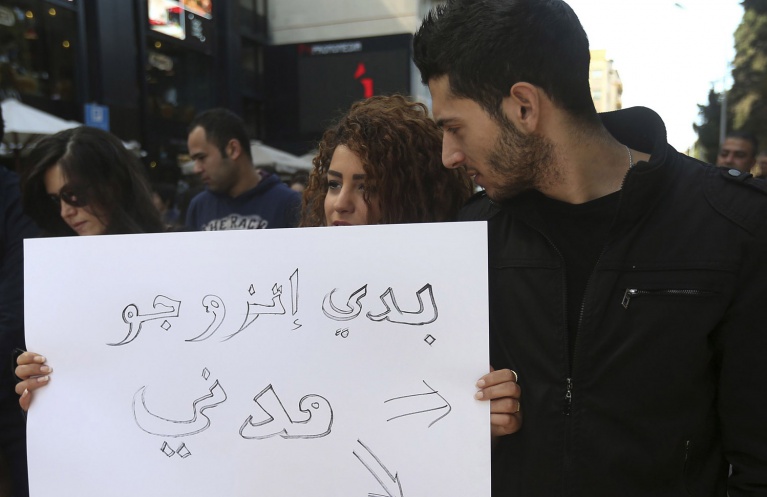 بدي إتزوجو
مدني